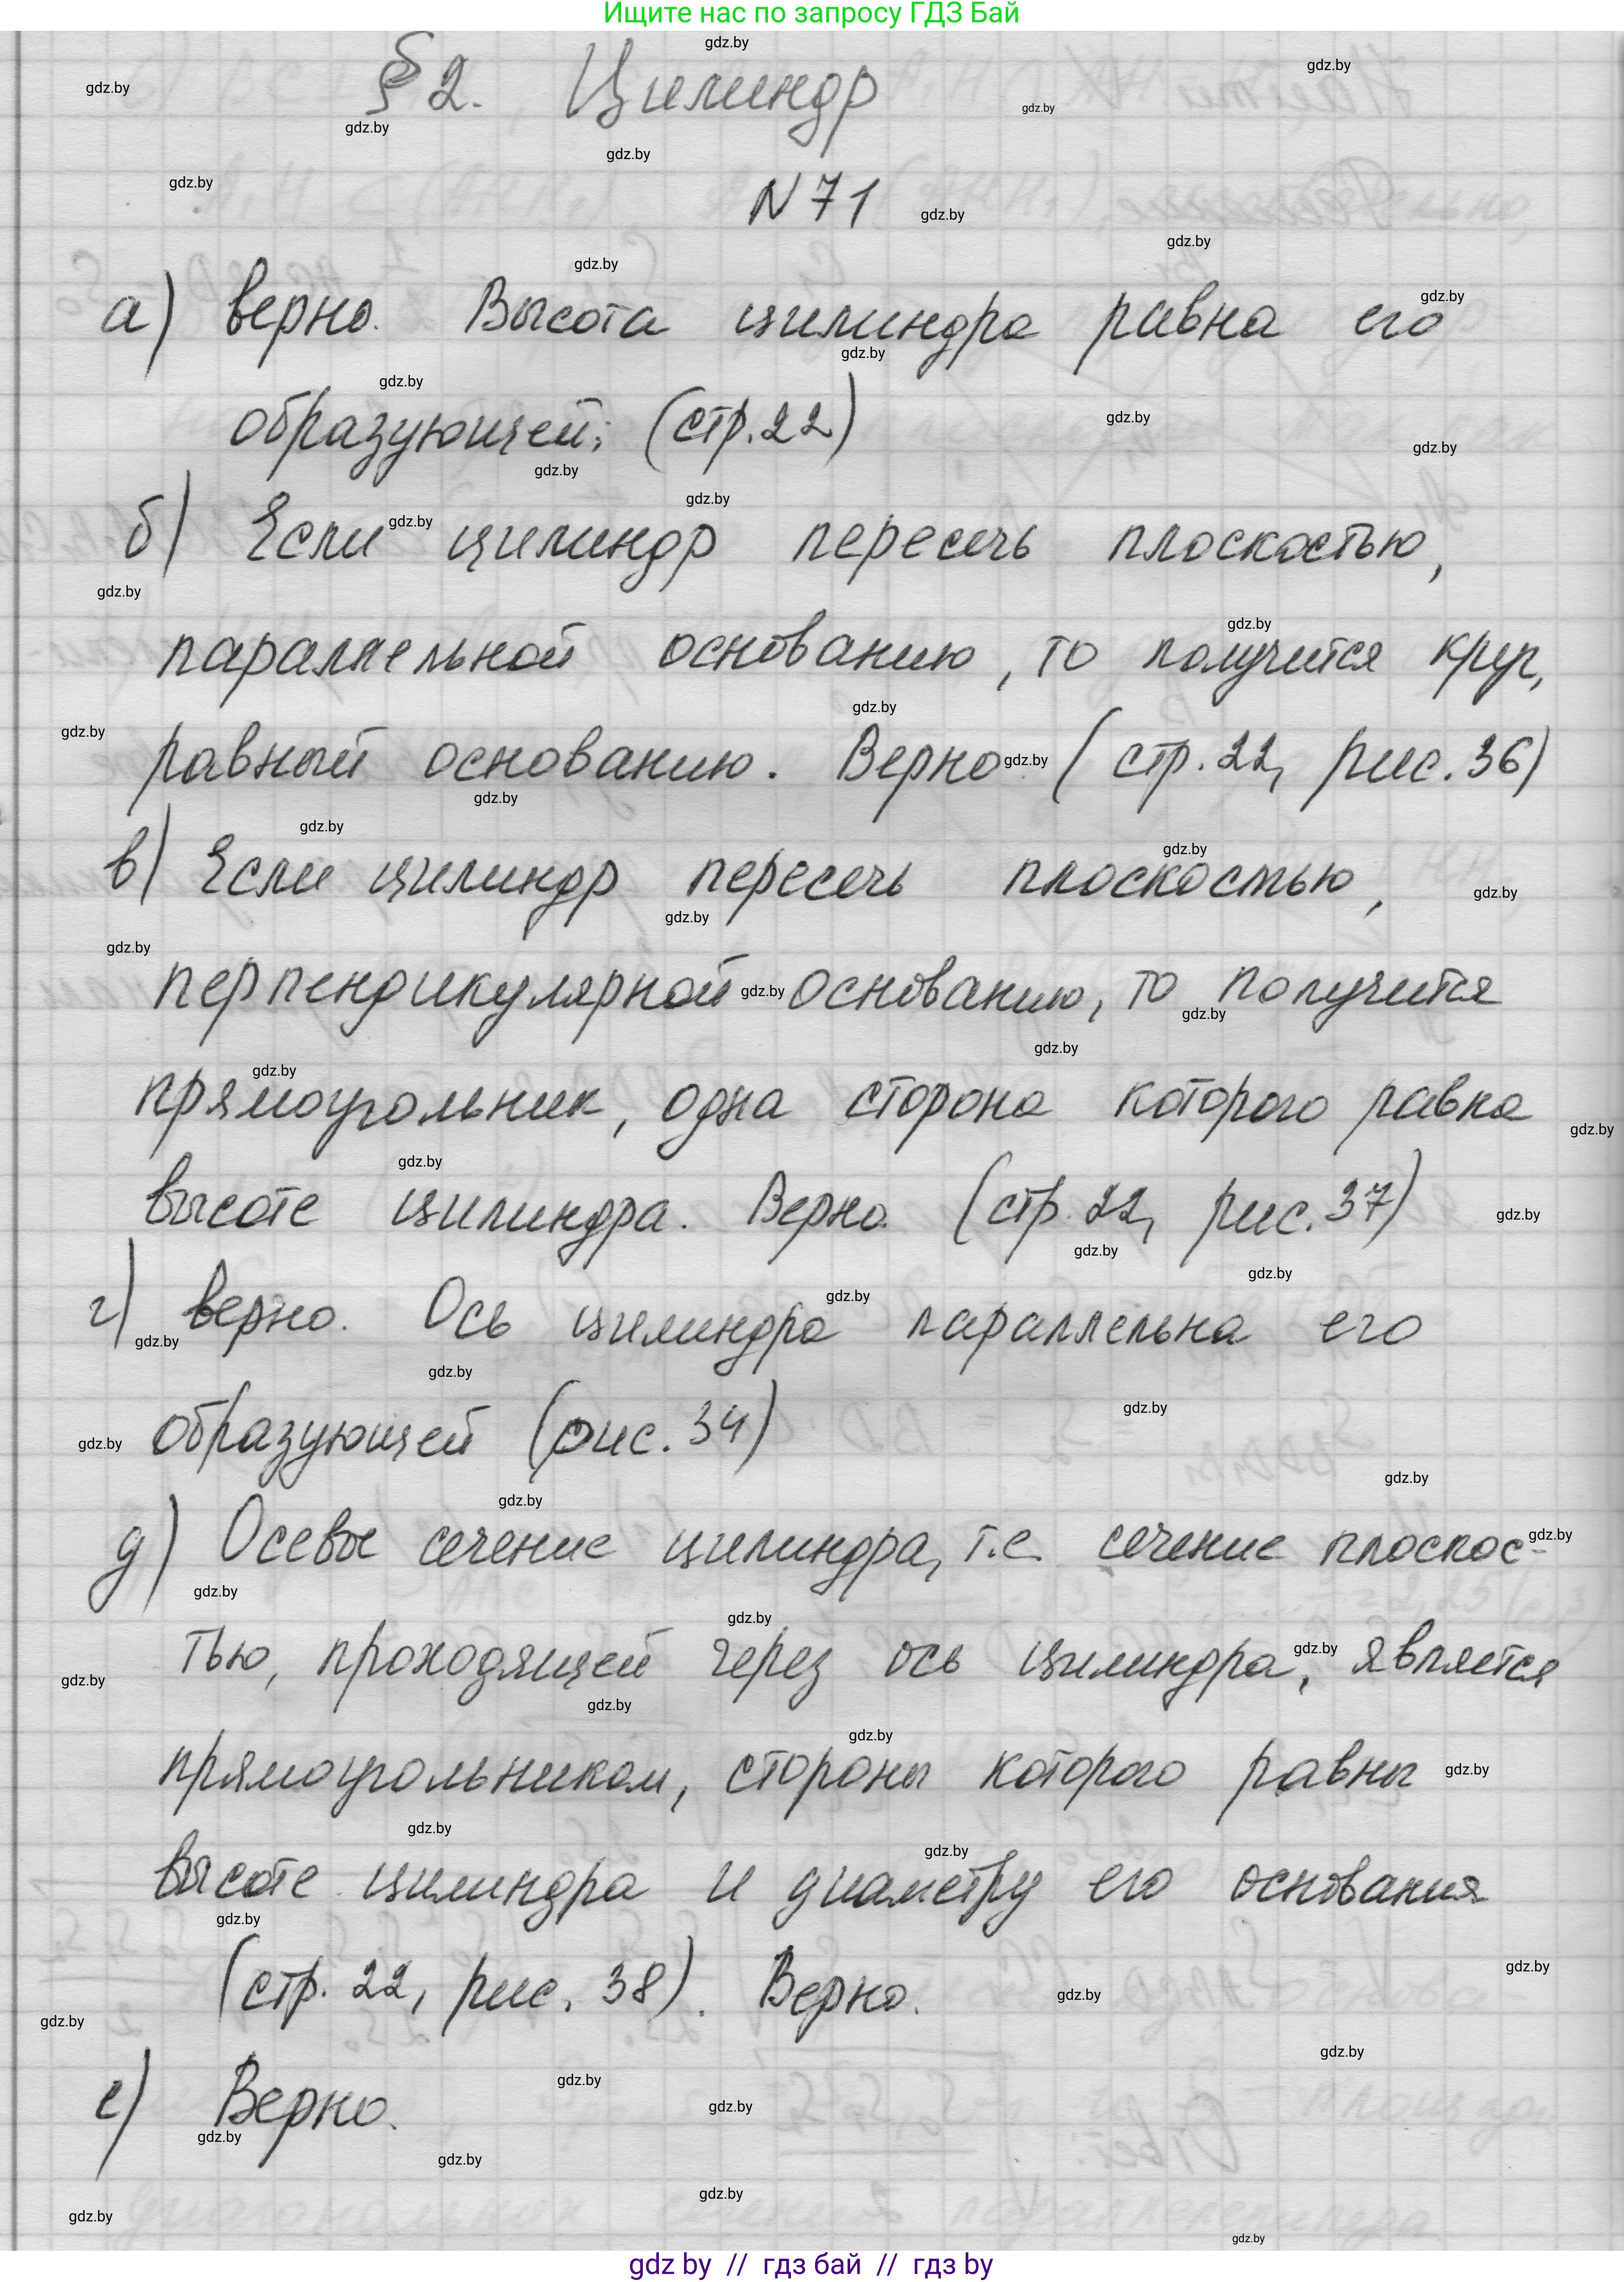 Ищите нас по запросу ГДЗ Бай
§ 2. Цилиндр
N 71
а) верно. Высота цилиндра равна его
образующей; (стр. 22)
б) Если цилиндр пересечь плоскостью,
параллельной основанию, то получится круг,
равный основанию. Верно. (стр. 22, рис. 36)
в) Если цилиндр пересечь плоскостью,
перпендикулярной основанию, то получится
прямоугольник, одна сторона которого равна
высоте цилиндра. Верно. (стр. 22, рис. 37)
г) верно. Ось цилиндра параллельна его
образующей (рис. 34)
д) Осевое сечение цилиндра, т.е. сечение плоскос-
тью, проходящей через ось цилиндра, является
прямоугольником, стороны которого равны
высоте цилиндра и диаметру его основания
(стр. 22, рис. 38). Верно.
е) Верно.
gdz by // гдз бай // гдз by